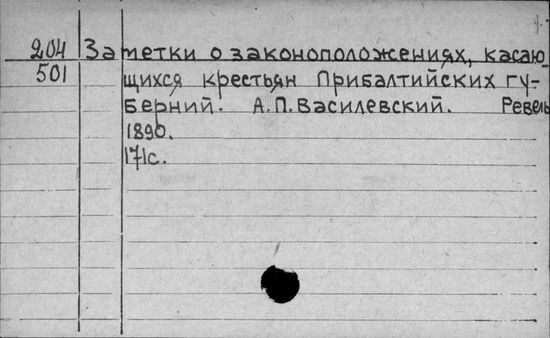 204 Заметки о законоположениях, касаю-
501 щихся крестьян Прибалтийских гу-
берний. А.П.Василевский. Ревель
1890.
171с.